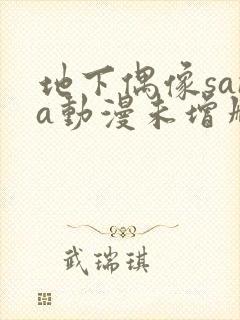 地下偶像sa
a動漫未增
武瑞琪